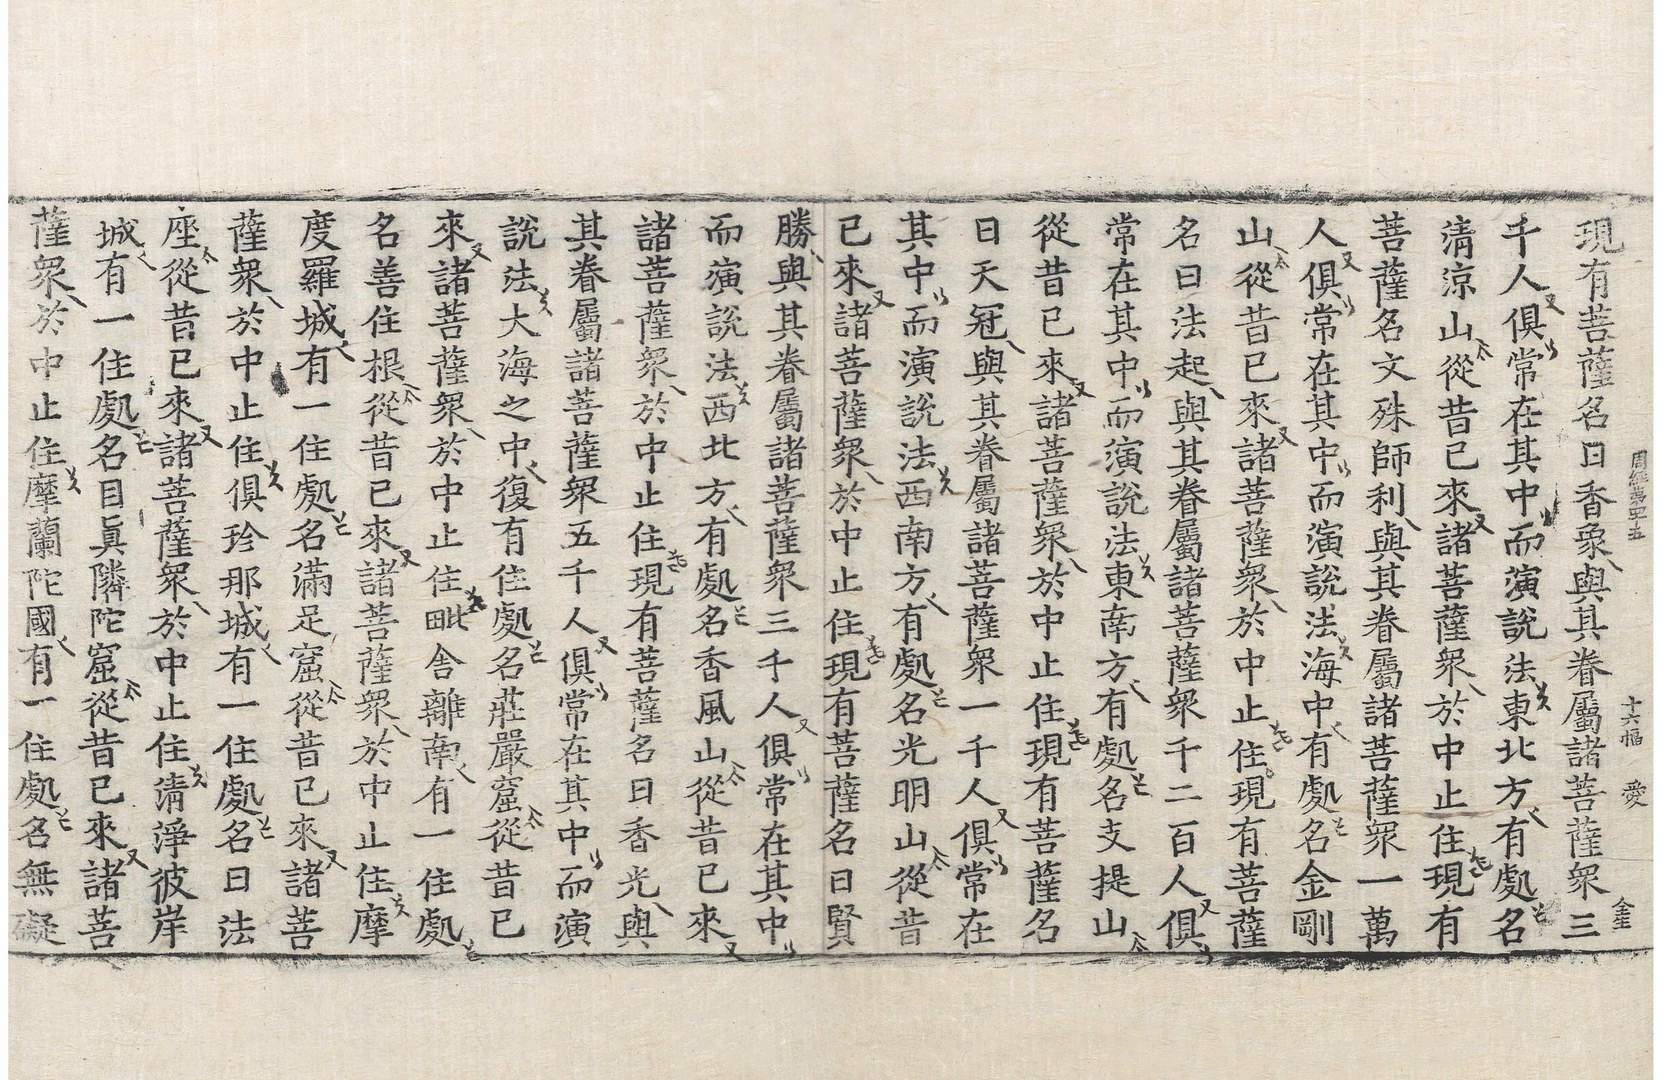 十六幅 愛
現有菩薩名曰香象與其眷屬諸菩薩衆三
千人俱常在其中而演說法東北方有處名
清涼山從昔已來諸菩薩衆於中止住現有
菩薩名文殊師利與其眷屬諸菩薩衆一萬
人俱常在其中而演說法海中有處名金剛
山從昔已來諸菩薩衆於中止住現有菩薩
名曰法起與其眷屬諸菩薩衆千二百人俱
常在其中而演說法東南方有處名支提山
從昔已來諸菩薩衆於中止住現有菩薩名
曰天冠與其眷屬諸菩薩衆一千人俱常在
其中而演說法西南方有處名光明山從昔
已來諸菩薩衆於中止住現有菩薩名曰賢
勝與其眷屬諸菩薩衆三千人俱常在其中
而演說法西北方有處名香風山從昔已來
諸菩薩衆於中止住現有菩薩名曰香光與
其眷屬諸菩薩衆五千人俱常在其中而演
說法大海之中復有住處名莊嚴窟從昔已
來諸菩薩衆於中止住毗舍離南有一住處
名善住根從昔已來諸菩薩衆於中止住摩
度羅城有一住處名滿足窟從昔已來諸菩
薩衆於中止住俱珍那城有一住處名曰法
座從昔已來諸菩薩衆於中止住清淨彼岸
城有一住處名目眞隣陀窟從昔已來諸菩
薩衆於中止住摩蘭陀國有一住處名無礙